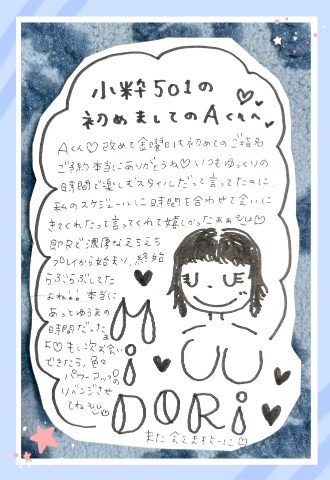 小粋501の
初めましてのAくんへ
Aくん♡改めて金曜日は初めてのご指名
ご予約本当にありがとうね♡いつもゆっくりの
時間で楽しむスタイルだって言ってたのに、
私のスケジュールに時間を合わせて会いに
きてくれたって言ってくれて嬉しかったぁぁ♡
即Rで濃厚なえちえち
プレイから始まり、終始
らぶらぶしてた
よね!!本当に
あってゆうまの
時間だった
よ♡もし次お会い
できたら、色々
パワーアップの
リベンジさせ
てね♡
MiDORi
また会えますよーに♡